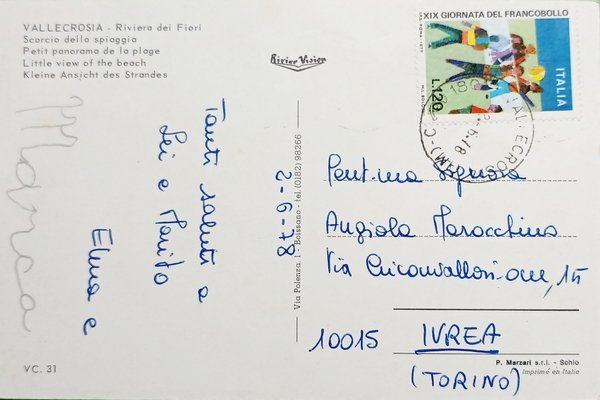 VALLECROSIA - Riviera dei Fiori
Scorcio della spiaggia
Petit panorama de la plage
Little view of the beach
Kleine Ansicht des Strandes
Rivier Vision
XIX GIORNATA DEL FRANCOBOLLO
ITALIA
L.120
VALLECROS
2.6.78
(IM)
Tanti saluti a
Lei e Marito
Elma e
Marca
2-6-78
Via Polenza, 1 - Boissano - tel. (0182) 98266
Gent.ma Signora
Angiola Marocchino
Via Circonvallazione, 15
10015 IVREA
(TORINO)
VC. 31
P. Marzari s.r.l. - Schio
Imprimé en Italie